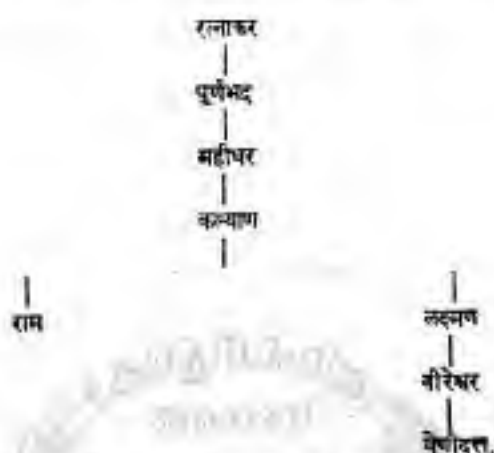 रत्नाकर
पूर्णभद्र
महीधर
कल्याण
राम
लक्ष्मण
वीरेश्वर
वेणीदत्त